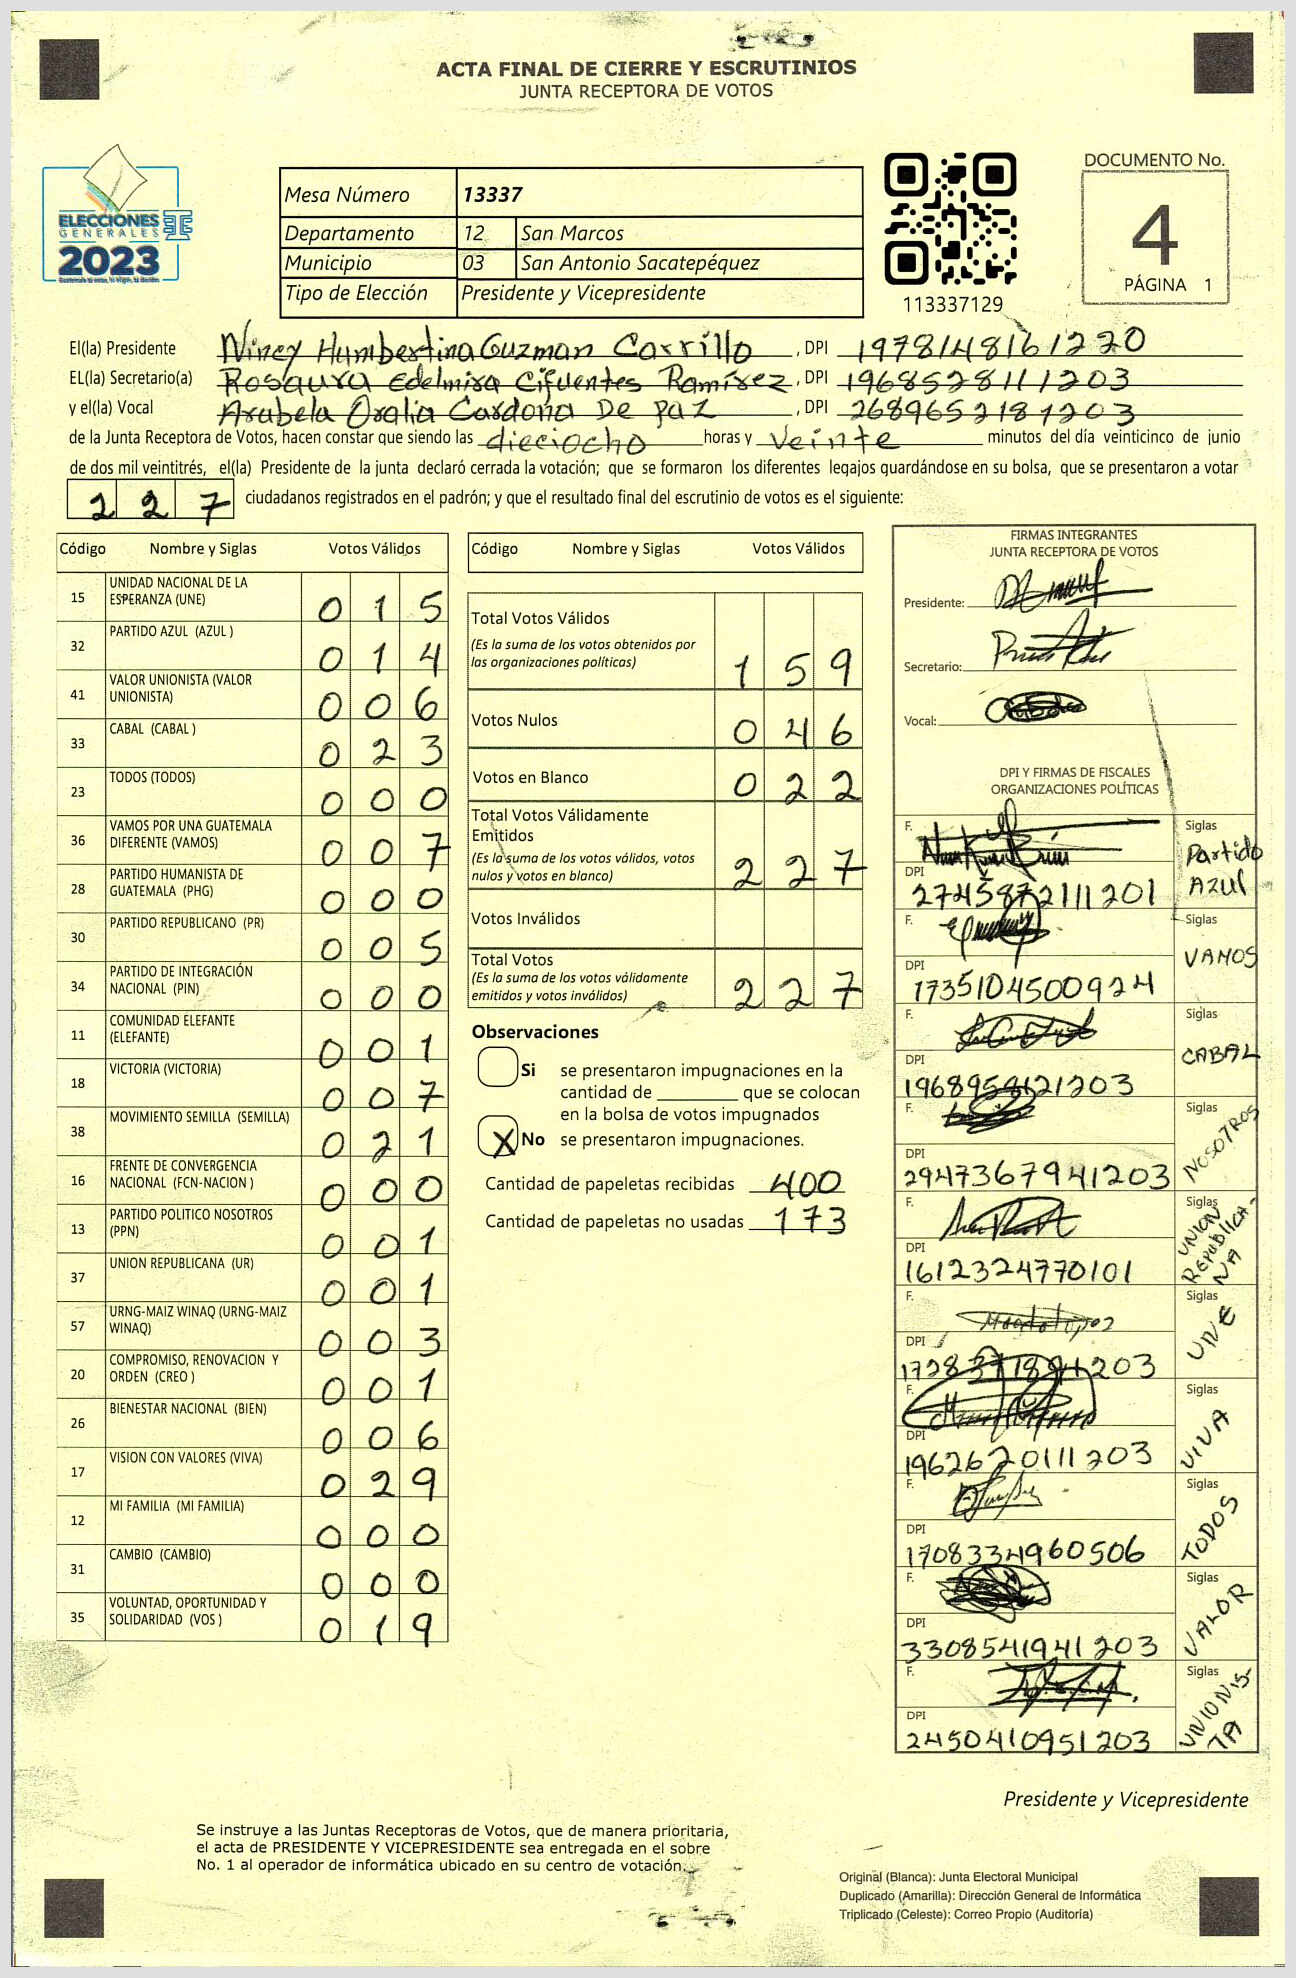 ACTA FINAL DE CIERRE Y ESCRUTINIOS
JUNTA RECEPTORA DE VOTOS
ELECCIONES
GENERALES
2023
Mesa Número 13337
Departamento 12 San Marcos
Municipio 03 San Antonio Sacatepéquez
Tipo de Elección Presidente y Vicepresidente
113337129
DOCUMENTO No.
4
PÁGINA 1
El(la) Presidente Nincy Humbertina Guzman Carrillo, DPI 1978148161220
EL(la) Secretario(a) Rosaura Edelmira Cifuentes Ramírez, DPI 1968528111203
y el(la) Vocal Arabela Oralia Cardona De paz, DPI 2689652181203
de la Junta Receptora de Votos, hacen constar que siendo las dieciocho horas y veinte minutos del día veinticinco de junio
de dos mil veintitrés, el(la) Presidente de la junta declaró cerrada la votación; que se formaron los diferentes legajos guardándose en su bolsa, que se presentaron a votar
227 ciudadanos registrados en el padrón; y que el resultado final del escrutinio de votos es el siguiente:
Código Nombre y Siglas Votos Válidos
15 UNIDAD NACIONAL DE LA
ESPERANZA (UNE) 015
32 PARTIDO AZUL (AZUL ) 014
41 VALOR UNIONISTA (VALOR
UNIONISTA) 006
33 CABAL (CABAL ) 023
23 TODOS (TODOS) 000
36 VAMOS POR UNA GUATEMALA
DIFERENTE (VAMOS) 007
28 PARTIDO HUMANISTA DE
GUATEMALA (PHG) 000
30 PARTIDO REPUBLICANO (PR) 005
34 PARTIDO DE INTEGRACIÓN
NACIONAL (PIN) 000
11 COMUNIDAD ELEFANTE
(ELEFANTE) 001
18 VICTORIA (VICTORIA) 007
38 MOVIMIENTO SEMILLA (SEMILLA) 021
16 FRENTE DE CONVERGENCIA
NACIONAL (FCN-NACION ) 000
13 PARTIDO POLITICO NOSOTROS
(PPN) 001
37 UNION REPUBLICANA (UR) 001
57 URNG-MAIZ WINAQ (URNG-MAIZ
WINAQ) 003
20 COMPROMISO, RENOVACION Y
ORDEN (CREO ) 001
26 BIENESTAR NACIONAL (BIEN) 006
17 VISION CON VALORES (VIVA) 029
12 MI FAMILIA (MI FAMILIA) 000
31 CAMBIO (CAMBIO) 000
35 VOLUNTAD, OPORTUNIDAD Y
SOLIDARIDAD (VOS ) 019
Código Nombre y Siglas Votos Válidos
Total Votos Válidos
(Es la suma de los votos obtenidos por
las organizaciones políticas) 159
Votos Nulos 046
Votos en Blanco 022
Total Votos Válidamente
Emitidos
(Es la suma de los votos válidos, votos
nulos y votos en blanco) 227
Votos Inválidos
Total Votos
(Es la suma de los votos válidamente
emitidos y votos inválidos) 227
Observaciones
Si se presentaron impugnaciones en la
cantidad de ________ que se colocan
en la bolsa de votos impugnados
X No se presentaron impugnaciones.
Cantidad de papeletas recibidas 400
Cantidad de papeletas no usadas 173
FIRMAS INTEGRANTES
JUNTA RECEPTORA DE VOTOS
Presidente:
Secretario:
Vocal:
DPI Y FIRMAS DE FISCALES
ORGANIZACIONES POLÍTICAS
F. Siglas Partido
Azul
DPI 2745872111201
F. Siglas VAMOS
DPI 1735104500924
F. Siglas CABAL
DPI 1968958121203
F. Siglas NOSOTROS
DPI 2947367941203
F. Siglas UNION
REPUBLICA-
NA
DPI 1612324770101
F. Siglas UNE
DPI 1728371891203
F. Siglas VIVA
DPI 1962620111203
F. Siglas TODOS
DPI 1708334960506
F. Siglas VALOR
DPI 3308541941203
F. Siglas UNIONIS-
TA
DPI 2450410951203
Presidente y Vicepresidente
Se instruye a las Juntas Receptoras de Votos, que de manera prioritaria,
el acta de PRESIDENTE Y VICEPRESIDENTE sea entregada en el sobre
No. 1 al operador de informática ubicado en su centro de votación.
Original (Blanca): Junta Electoral Municipal
Duplicado (Amarilla): Dirección General de Informática
Triplicado (Celeste): Correo Propio (Auditoría)